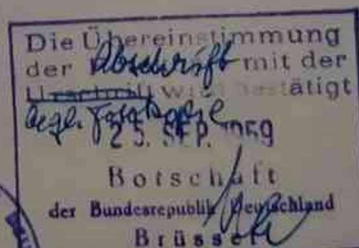 Die Übereinstimmung
der Abschrift mit der
Urschrift wird bestätigt
begl. Fotokopie
25. SEP. 1959
Botschaft
der Bundesrepublik Deutschland
Brüssel